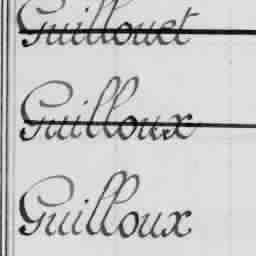 Guillouet
Guilloux
Guilloux